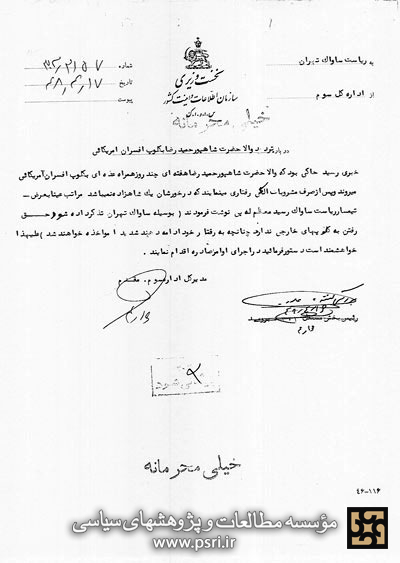 به ریاست ساواک تهران
از اداره کل سوم
نخست وزیری
سازمان اطلاعات و امنیت کشور
شماره
تاریخ
پیوست
خیلی محرمانه
درباره والا حضرت شاهپور حمید رضا بکلوپ افسران امریکائی
خبری رسید حاکی بود که والا حضرت شاهپور حمید رضا هفته ای چند روز همراه عده ای بکلوپ افسران آمریکائی
میروند و پس از صرف مشروبات الکلی رفتاری مینمایند که درخور شان یک شاهزاده نمیباشد مراتب عینا بعرض
تیمسار ریاست ساواک رسید معظم له پی نوشت فرمودند (بوسیله ساواک تهران تذکر داده شود حق
رفتن به کلوپهای خارجی ندارد چنانچه به رفتار خود ادامه دهند شدیدا مواخذه خواهند شد) علیهذا
خواهشمند است دستور فرمائید در اجرای اوامر صادره اقدام نمایند.
مدیر کل اداره سوم . مقدم
خیلی محرمانه
۴۶-۱۱۶
مؤسسه مطالعات و پژوهشهای سیاسی
www.psri.ir